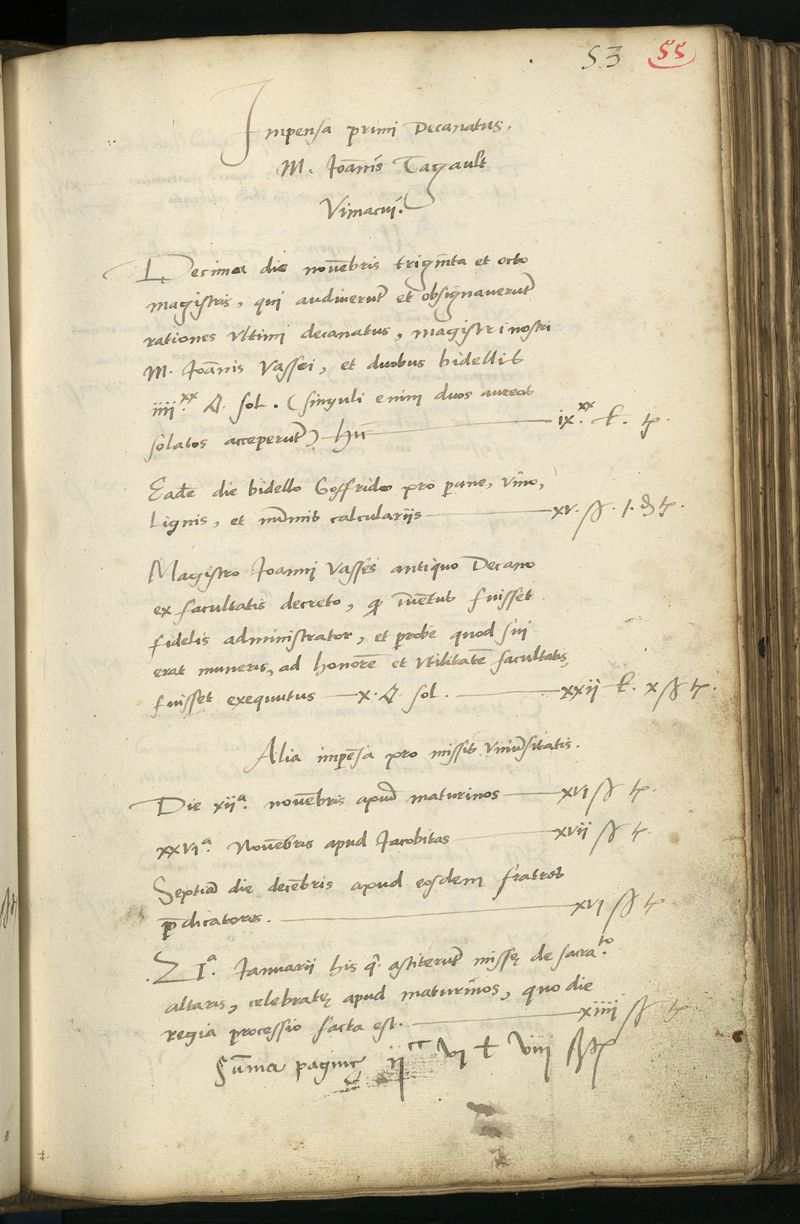 53 55
Impensa primi Decanatus,
M. Ioānis Tagault
Vimacui.
Decima die novēbris triginta et octo
magistris, qui audiverūt et obsignaverūt
rationes ultimi decanatus, magistri nostri
M. Ioānis Vassei, et duobus bidellis
iiii.xx sol. (singuli enim duos aureos
solatos acceperūt) ix.xx ł. t.
Eadē die bidello Goffrido pro pane, vino,
lignis, et nūmis calculariis xv. ß. 1. d t.
Magistro Ioanni Vasses antiquo Decano
ex facultatis decreto, q̄ īuētus fuisset
fidelis administrator, et probe quod sui
erat muneris, ad honorē et utilitatē facultatis
fuisset exequutus x. sol. xxii ł. x ß t.
Alia impēsa pro missis uniūsitatis.
Die xiia. novēbris apud maturinos xvi ß t.
xxvia. Novēbris apud Iacobitas xvii ß t.
Septima die decēbris apud eosdem fratres
p̄dicatores. xvi ß t.
21a. Ianuarii his q̄ astiterūt missę de sacra.to
altaris, celebratę apud maturinos, quo die
regia processio facta est. xiiii ß t.
Sūma paginę iicc vi ł viii ß t